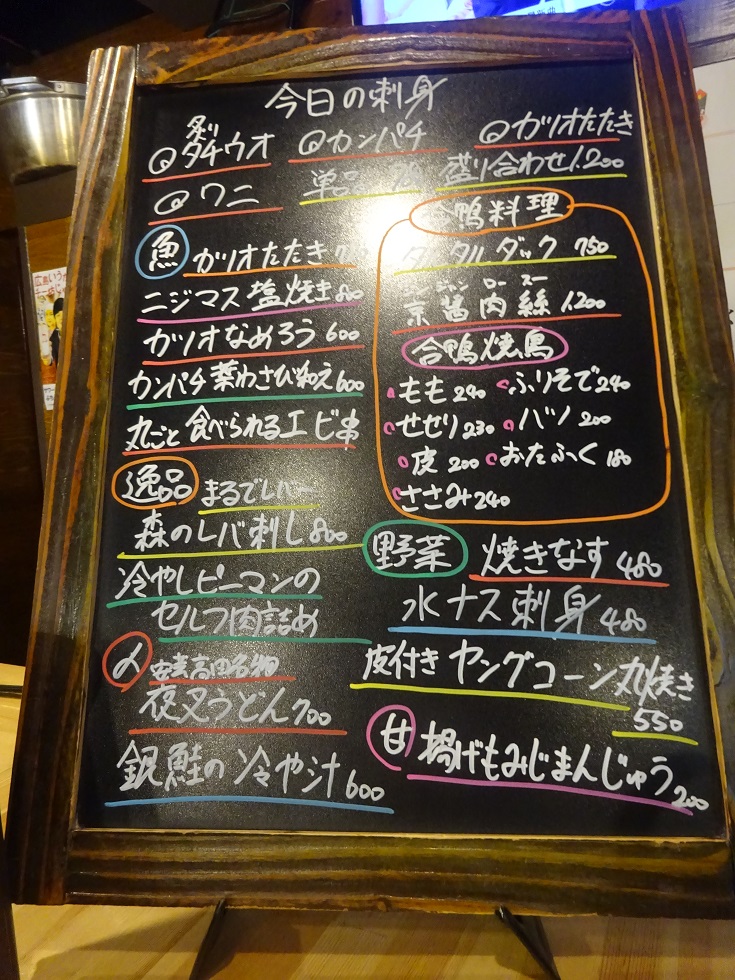 今日の刺身
炙り
タチウオ カンパチ カツオたたき
ワニ 単品 盛り合わせ1.200
魚 カツオたたき
ニジマス塩焼き 800
カツオなめろう 600
カンパチ葉わさび和え600
丸ごと食べられるエビ串
逸品 まるでレバー
森のレバ刺し 800
冷やしピーマンの
セルフ肉詰め
〆 安芸高田名物
夜叉うどん700
銀鮭の冷や汁 600
合鴨料理
タンタルダック 750
ジャン ロー スー
京醤肉絲 1.200
合鴨焼鳥
もも 240 ふりそで240
せせり230 ハツ 200
皮 200 おたふく 180
ささみ240
野菜 焼きなす 480
水ナス刺身 480
皮付きヤングコーン丸焼き
550
甘 揚げもみじまんじゅう
200